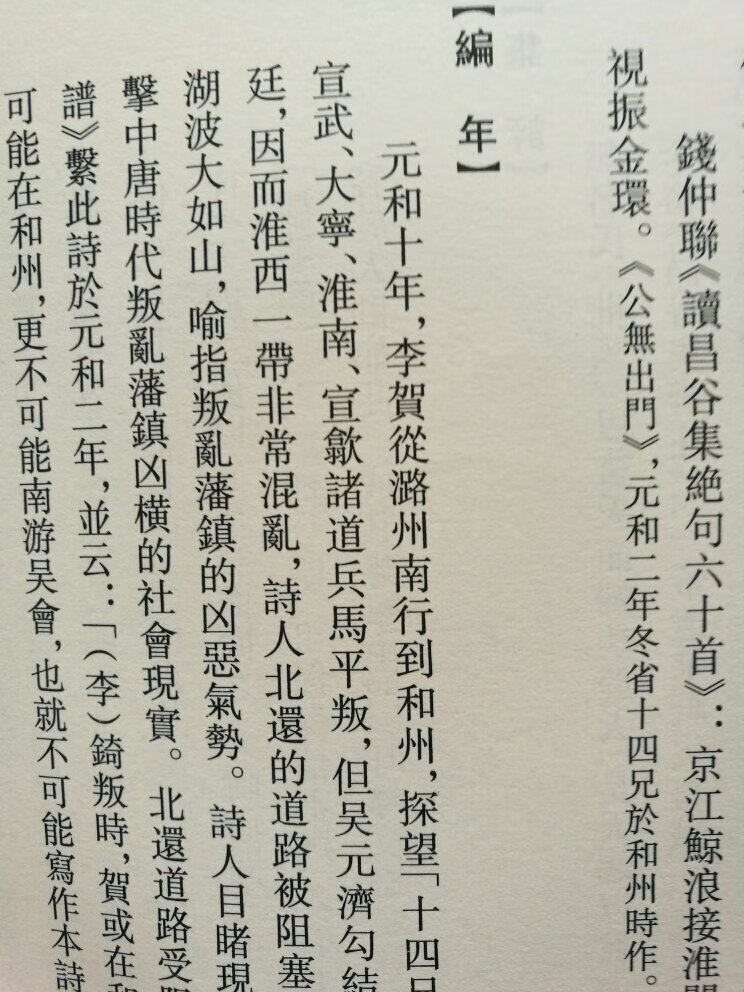 錢仲聯《讀昌谷集絶句六十首》：京江鯨浪接淮
視振金環。《公無出門》，元和二年冬省十四兄於和州時作。
【編　年】
元和十年，李賀從潞州南行到和州，探望「十四兄
宣武、大寧、淮南、宣歙諸道兵馬平叛，但吴元濟勾結
廷，因而淮西一帶非常混亂，詩人北還的道路被阻塞
湖波大如山，喻指叛亂藩鎮的凶惡氣勢。詩人目睹現
擊中唐時代叛亂藩鎮凶橫的社會現實。北還道路受
譜》繫此詩於元和二年，並云：「（李）錡叛時，賀或在和
可能在和州，更不可能南游吴會，也就不可能寫作本詩